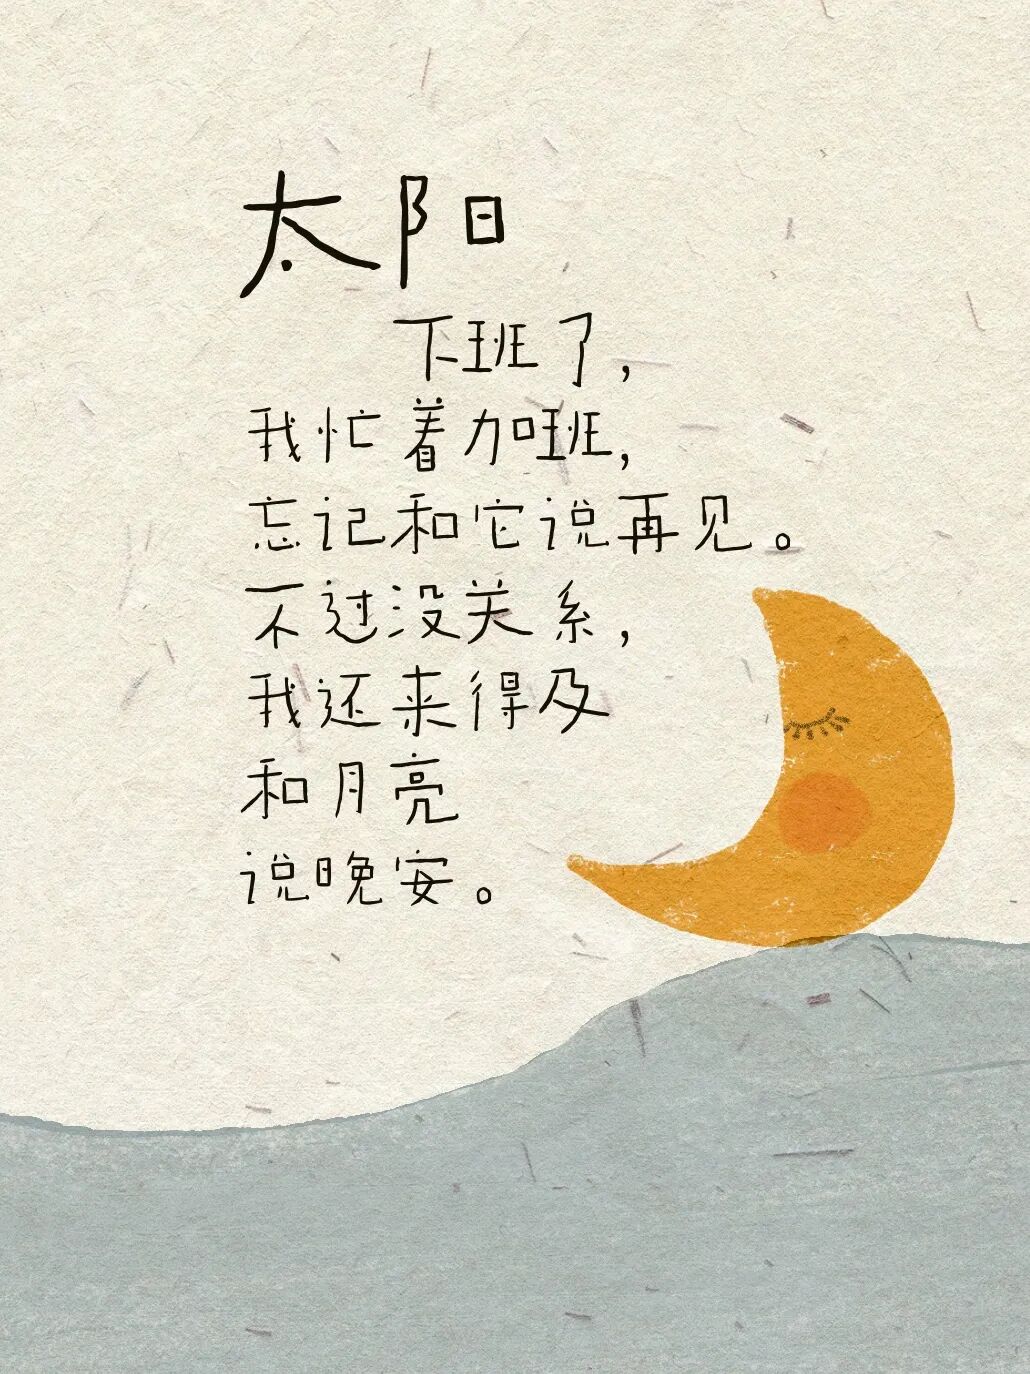 太阳
下班了，
我忙着加班，
忘记和它说再见。
不过没关系，
我还来得及
和月亮
说晚安。